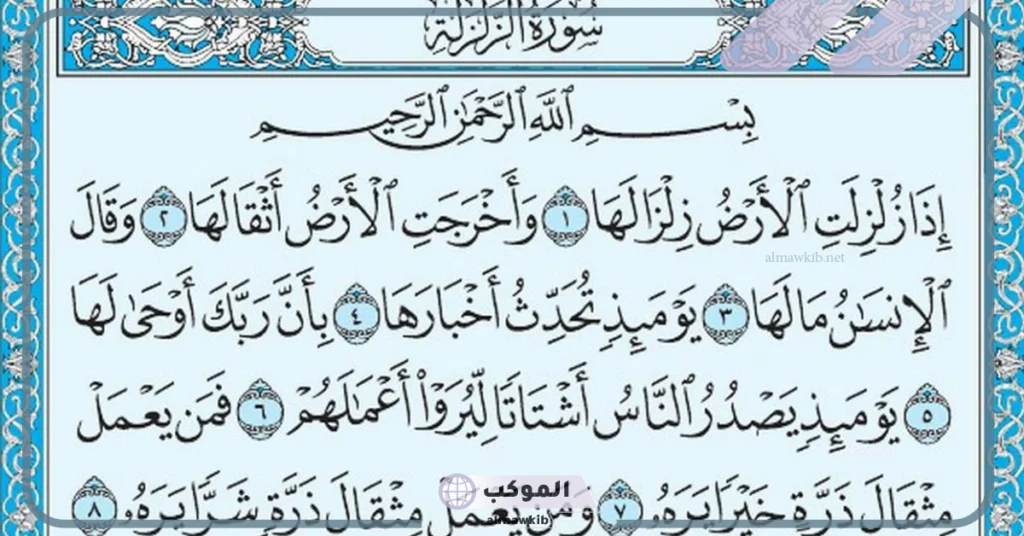 سُورَةُ الزَّلْزَلَةِ
بِسْمِ ٱللَّهِ ٱلرَّحْمَٰنِ ٱلرَّحِيمِ
إِذَا زُلْزِلَتِ ٱلْأَرْضُ زِلْزَالَهَا ١ وَأَخْرَجَتِ ٱلْأَرْضُ أَثْقَالَهَا ٢ وَقَالَ
almawkib.net
ٱلْإِنسَٰنُ مَا لَهَا ٣ يَوْمَئِذٍ تُحَدِّثُ أَخْبَارَهَا ٤ بِأَنَّ رَبَّكَ أَوْحَىٰ لَهَا
٥ يَوْمَئِذٍ يَصْدُرُ ٱلنَّاسُ أَشْتَاتًا لِّيُرَوْا۟ أَعْمَٰلَهُمْ ٦ فَمَن يَعْمَلْ
مِثْقَالَ ذَرَّةٍ خَيْرًا يَرَهُۥ ٧ وَمَن يَعْمَلْ مِثْقَالَ ذَرَّةٍ شَرًّا يَرَهُۥ ٨
الموكب
almawkib